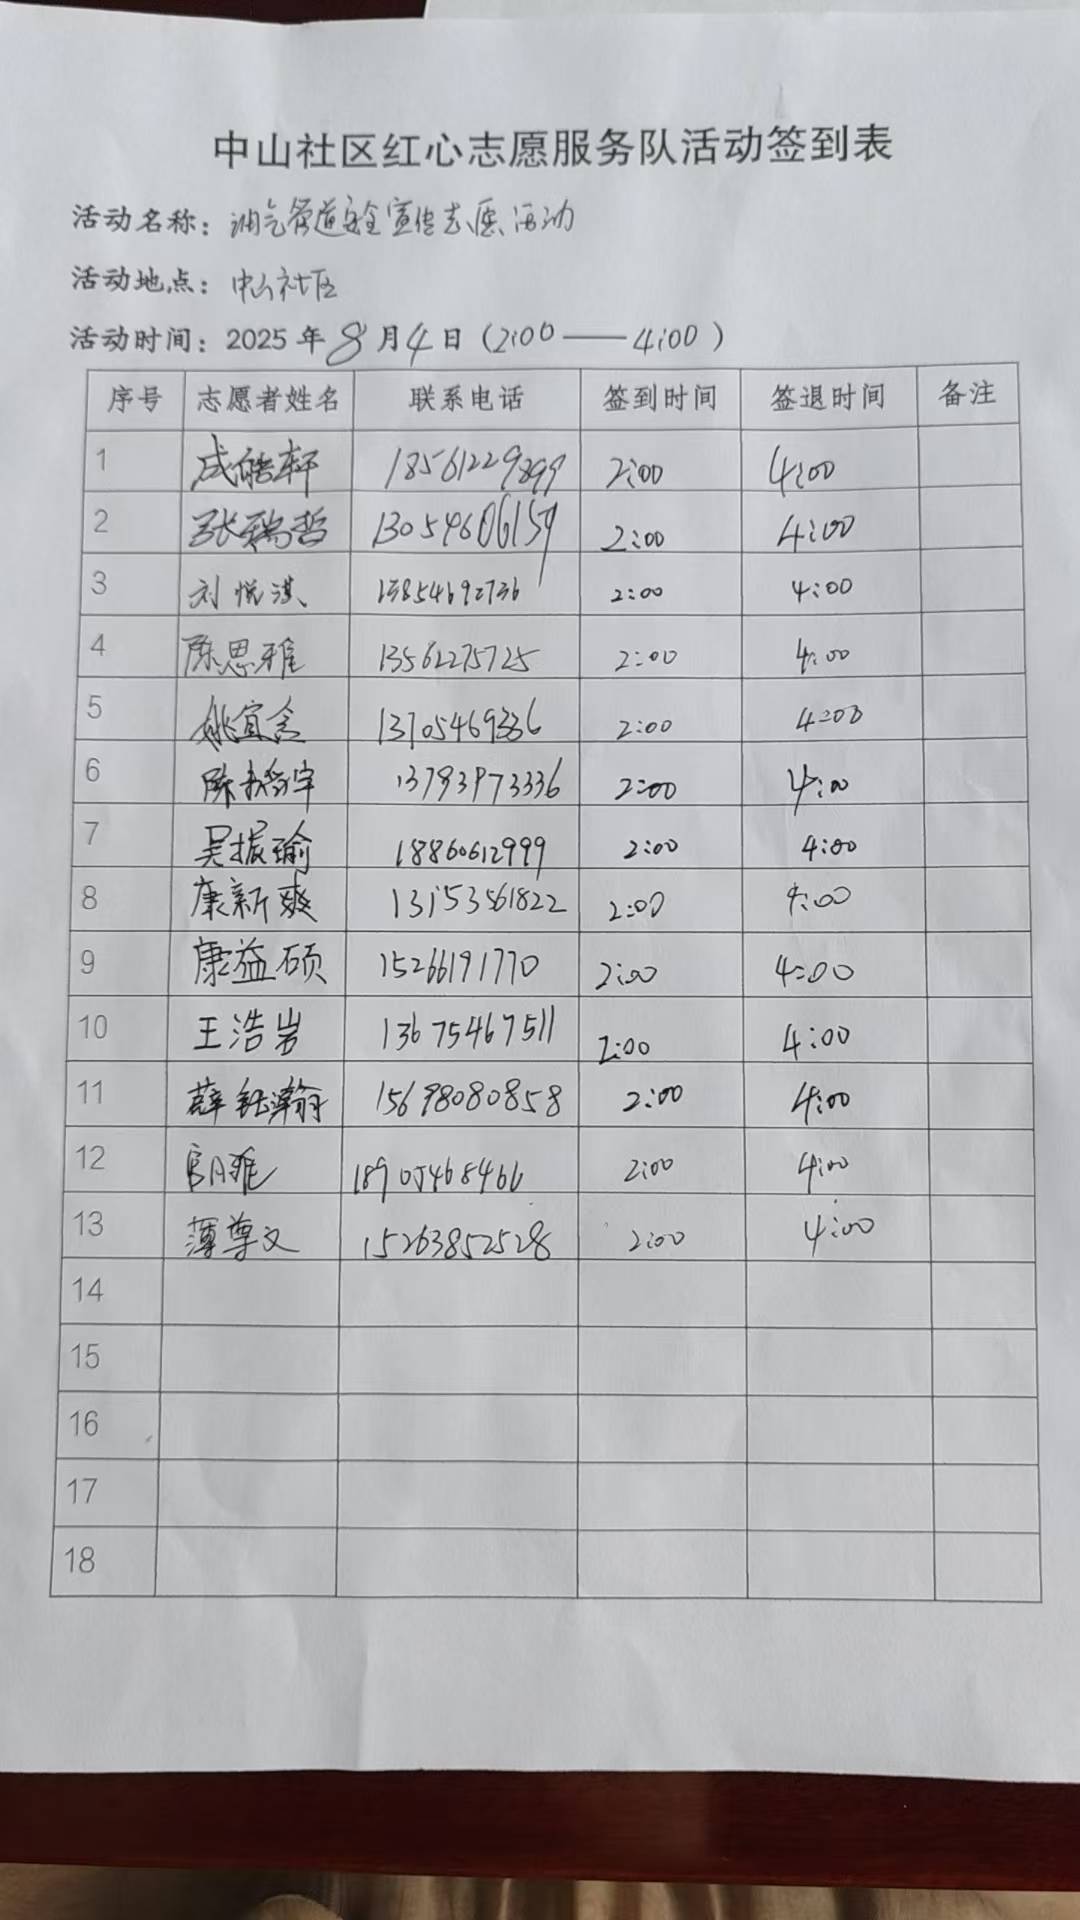 中山社区红心志愿服务队活动签到表
活动名称：油气管道安全宣传志愿活动
活动地点：中山社区
活动时间：2025年8月4日（2:00——4:00）
序号 志愿者姓名 联系电话 签到时间 签退时间 备注
1 成皓轩 18561229899 2:00 4:00
2 张瑞哲 13054606159 2:00 4:00
3 刘悦淇 13854692736 2:00 4:00
4 陈思雅 13561275725 2:00 4:00
5 姚宜含 13705469336 2:00 4:00
6 陈 宇 13793973336 2:00 4:00
7 吴振瑜 18860612999 2:00 4:00
8 康新爽 13153561822 2:00 4:00
9 康益硕 15266191770 2:00 4:00
10 王浩岩 13675467511 2:00 4:00
11 薛钰瀚 15698080858 2:00 4:00
12 18905468466 2:00 4:00
13 薄尊文 15263852528 2:00 4:00
14
15
16
17
18